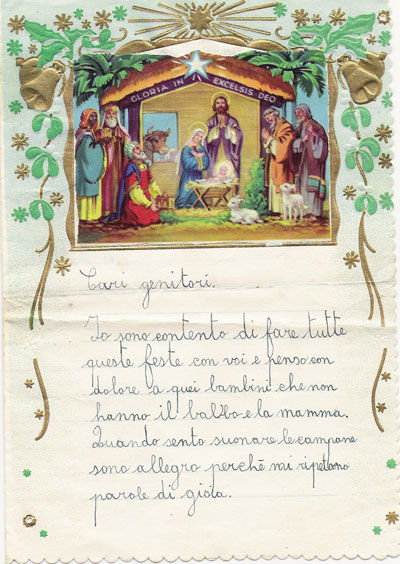 GLORIA IN EXCELSIS DEO
Cari genitori.
Io sono contento di fare tutte
queste feste con voi e penso con
dolore a quei bambini che non
hanno il babbo e la mamma.
Quando sento suonare le campane
sono allegro perchè mi ripetono
parole di gioia.